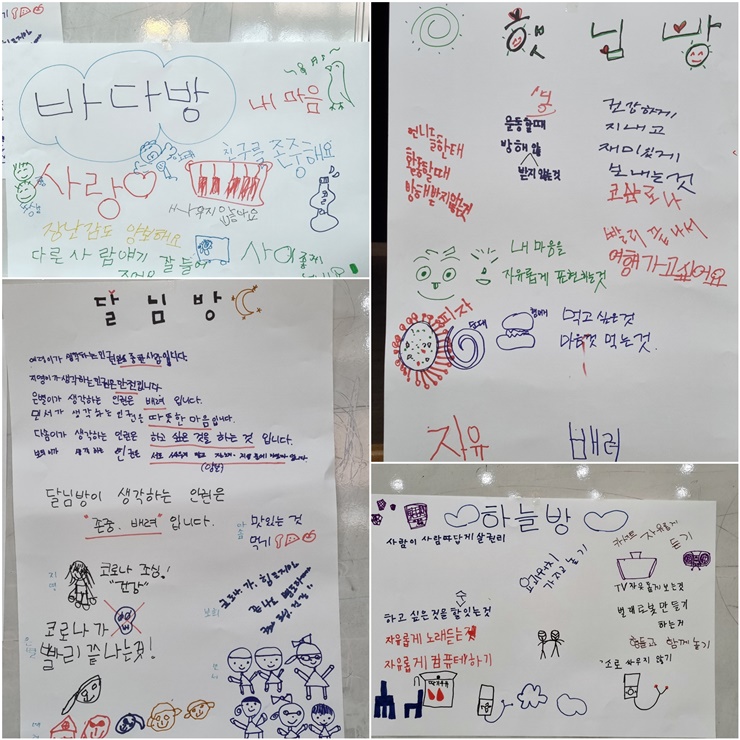 바다방
내 마음
친구를 존중해요
사랑
싸우지 않아요
장난감도 양보해요
다른 사람얘기 잘 들어
사이좋게
햇님방
운동할때
방해
받지않는것
언니들한태
활동할때
방해받지않는것
건강하게
지내고
재미있게
보내는것
코로나
빨리 끝나서
여행가고싶어요
내 마음을
자유롭게 표현하는것
피자
햄버거
먹고 싶은것
먹는것.
자유
배려
달님방
생각하는 인권은 존중사랑입니다
지영이가 생각하는 인권은 안전입니다.
은별이가 생각하는 인권은 배려 입니다.
모서가 생각하는 인권은 따뜻한 마음입니다.
다솜이가 생각하는 인권은 하고 싶은 것을 하는 것 입니다.
달님방이 생각하는 인권은
"존중, 배려" 입니다.
다솜
맛있는 것
먹기
지영
코로나 조심!
"건강"
은별
코로나가
빨리 끝나는것!
보희
모서
하늘방
사람이 사람답게 살권리
가지고 놀기
자유롭게
듣기
TV자유롭게보는것
하고 싶은것을 할수있는것
자유롭게 노래듣는것
자유롭게 컴퓨터하기
만들기
하는거
함께 놀기
서로 싸우지 않기